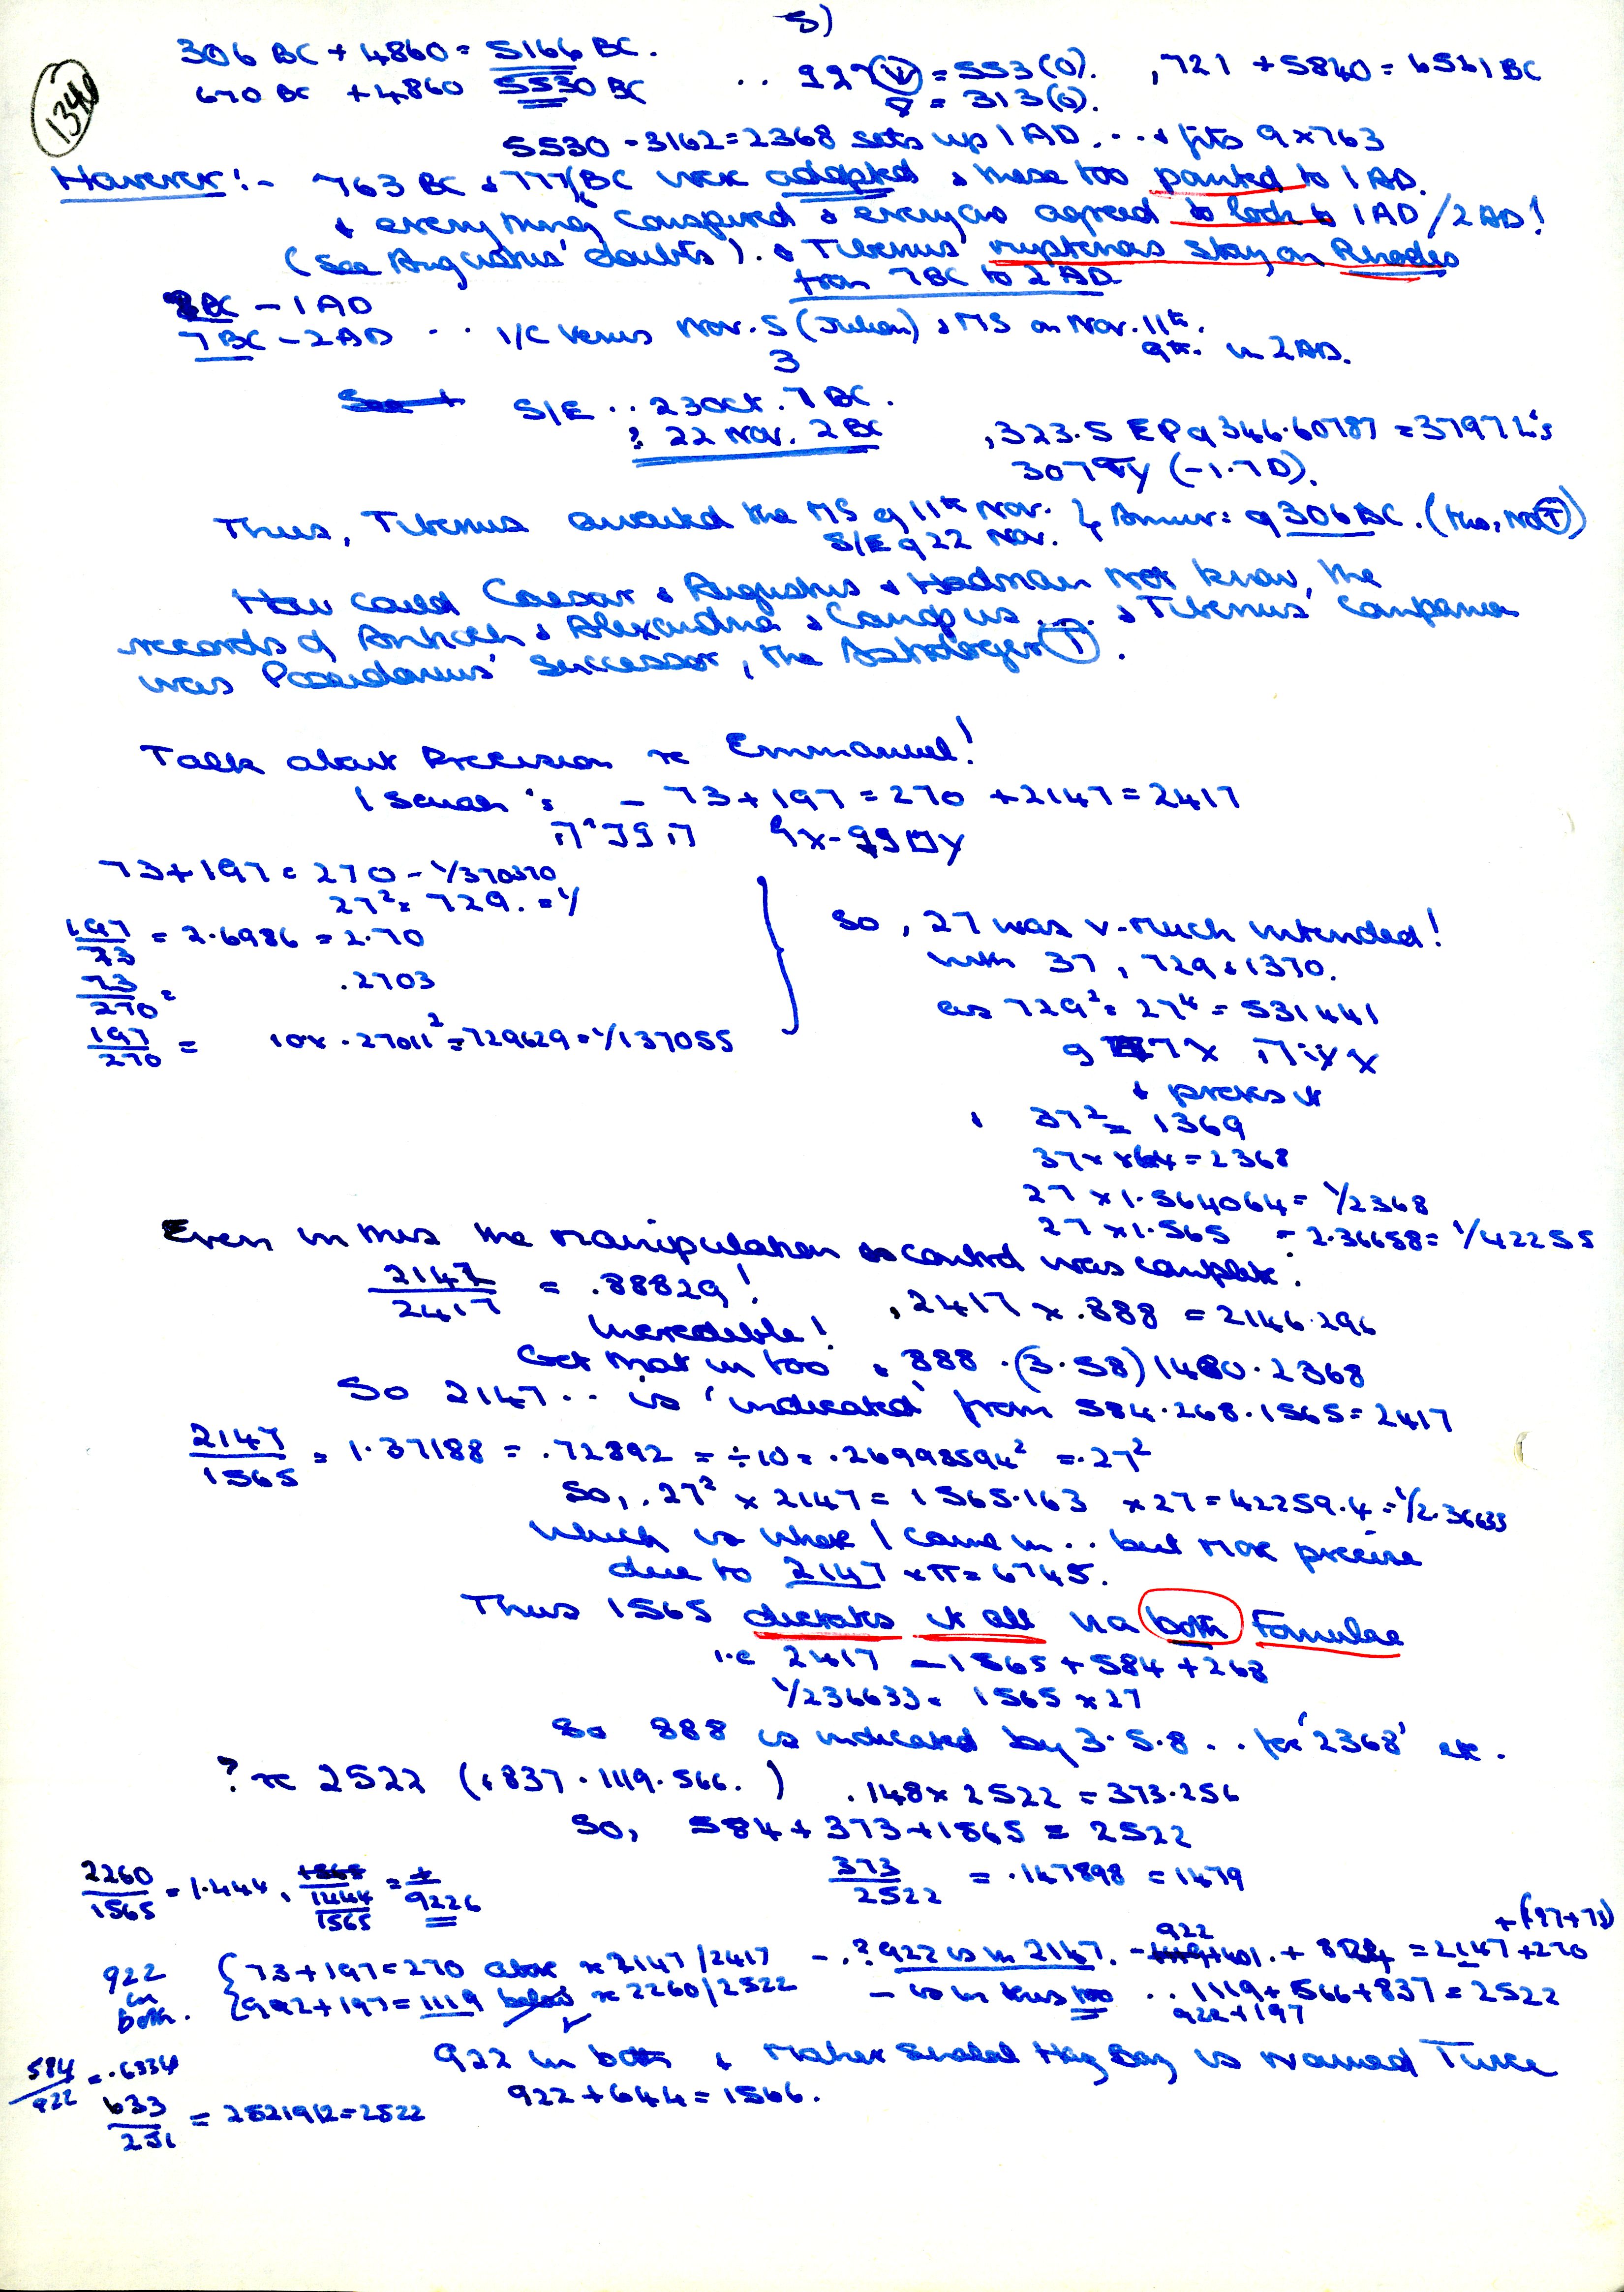 5)
1340
306 BC + 4860 = 5166 BC.
670 BC + 4860 5530 BC
= 553 (0). , 721 + 5840 = 6561 BC
= 313 (0).
5530 - 3162 = 2368 sets up 1 AD. .. + fits 9 x 763
However! :- 763 BC & 777/6 BC were adopted & these too pointed to 1 AD.
& everything conspired & everyone agreed to look to 1 AD / 2 AD!
(See Augustus' doubts). & Tiberius' mysterious stay on Rhodes
from 7 BC to 2 AD
8 BC - 1 AD
7 BC - 2 AD .. I/C Venus Nov. 5 (Julian) , MS on Nov. 11th.
3 9th. in 2 AD.
S/E .. 23 Oct. 7 BC.
? 22 Nov. 2 BC
, 323.5 EP of 346.60787 = 3797 L's
307 TY (-1.7 D).
Thus, Tiberius awaited the MS of 11th Nov. } Anniver: of 306 BC. (
S/E of 22 Nov.
How could Caesar & Augustus & Hadrian not know, the
records of Antioch & Alexandria & Canopus .... & Tiberius' companion
was Poseidonius' successor, the Astrologer (T).
Talk about Precision re Emmanuel!
Isaiah 's - 73 + 197 = 270 + 2147 = 2417
73 + 197 = 270 - 1/370370
27² = 729. = 1/
197/73 = 2.6986 = 2.70
73/270 = .2703
197/270 = 10x .27011² = 729629 = 1/137055
So, 27 was v. much intended!
with 37, 729 & 1370.
as 729² = 27⁴ = 531441
& proves it
, 37² = 1369
37 x 64 = 2368
27 x 1.564064 = 1/2368
27 x 1.565 = 2.36658 = 1/42255
Even in this the manipulation & control was complete.
2147/2417 = .88829! , 2417 x .888 = 2146.296
Incredible!
Get that in too & 888 . (3.58) 1480 . 2368
So 2147 .. is 'indicated' from 584 . 268 . 1565 = 2417
2147/1565 = 1.37188 = .72892 = ÷10 = .26998594² = .27²
So, .27² x 2147 = 1565.163 x 27 = 42259.4 = 1/2.36633
which is where I came in .. but more precise
due to 2147 x π = 6745.
Thus 1565 dictates it all via both Formulae
i.e 2417 - 1565 + 584 + 268
1/236633 = 1565 x 27
So 888 is indicated by 3.5.8 .. for '2368' etc.
? re 2522 (& 837 . 1119 . 566.) .148 x 2522 = 373.256
So, 584 + 373 + 1565 = 2522
2260/1565 = 1.444,
1444/1565 = 9226
373/2522 = .147898 = 1479
+ (197 + 73)
922 in both. { 73 + 197 = 270 above re 2147/2417 - .? 922 is in 2147. - 922 + 401. + 824 = 2147 + 270
{ 922 + 197 = 1119 below re 2260/2522 - is in this too .. 1119 + 566 + 837 = 2522
922 + 197
584/922 = .6334
922 in both & Maher Shalal Haz Baz is named Twice
922 + 644 = 1566.
633/251 = 2521912 = 2522